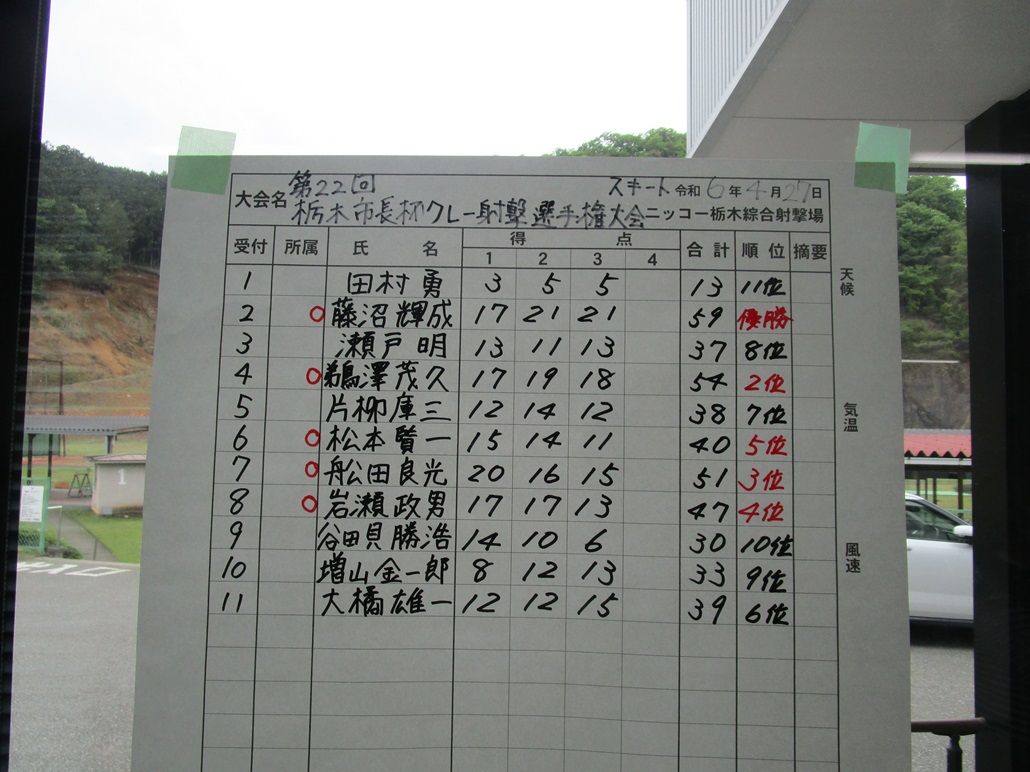 第22回 スキート 令和6年4月27日
大会名 栃木市長杯クレー射撃選手権大会 ニッコー栃木綜合射撃場
受付 所属 氏名 得点 合計 順位 摘要
1 2 3 4
1 田村勇 3 5 5 13 11位
2 ○ 藤沼輝成 17 21 21 59 優勝
3 瀬戸明 13 11 13 37 8位
4 ○ 鵜澤茂久 17 19 18 54 2位
5 片柳庫三 12 14 12 38 7位
6 ○ 松本賢一 15 14 11 40 5位
7 ○ 舩田良光 20 16 15 51 3位
8 ○ 岩瀬政男 17 17 13 47 4位
9 谷田貝勝浩 14 10 6 30 10位
10 増山金一郎 8 12 13 33 9位
11 大橋雄一 12 12 15 39 6位
天候
気温
風速
1